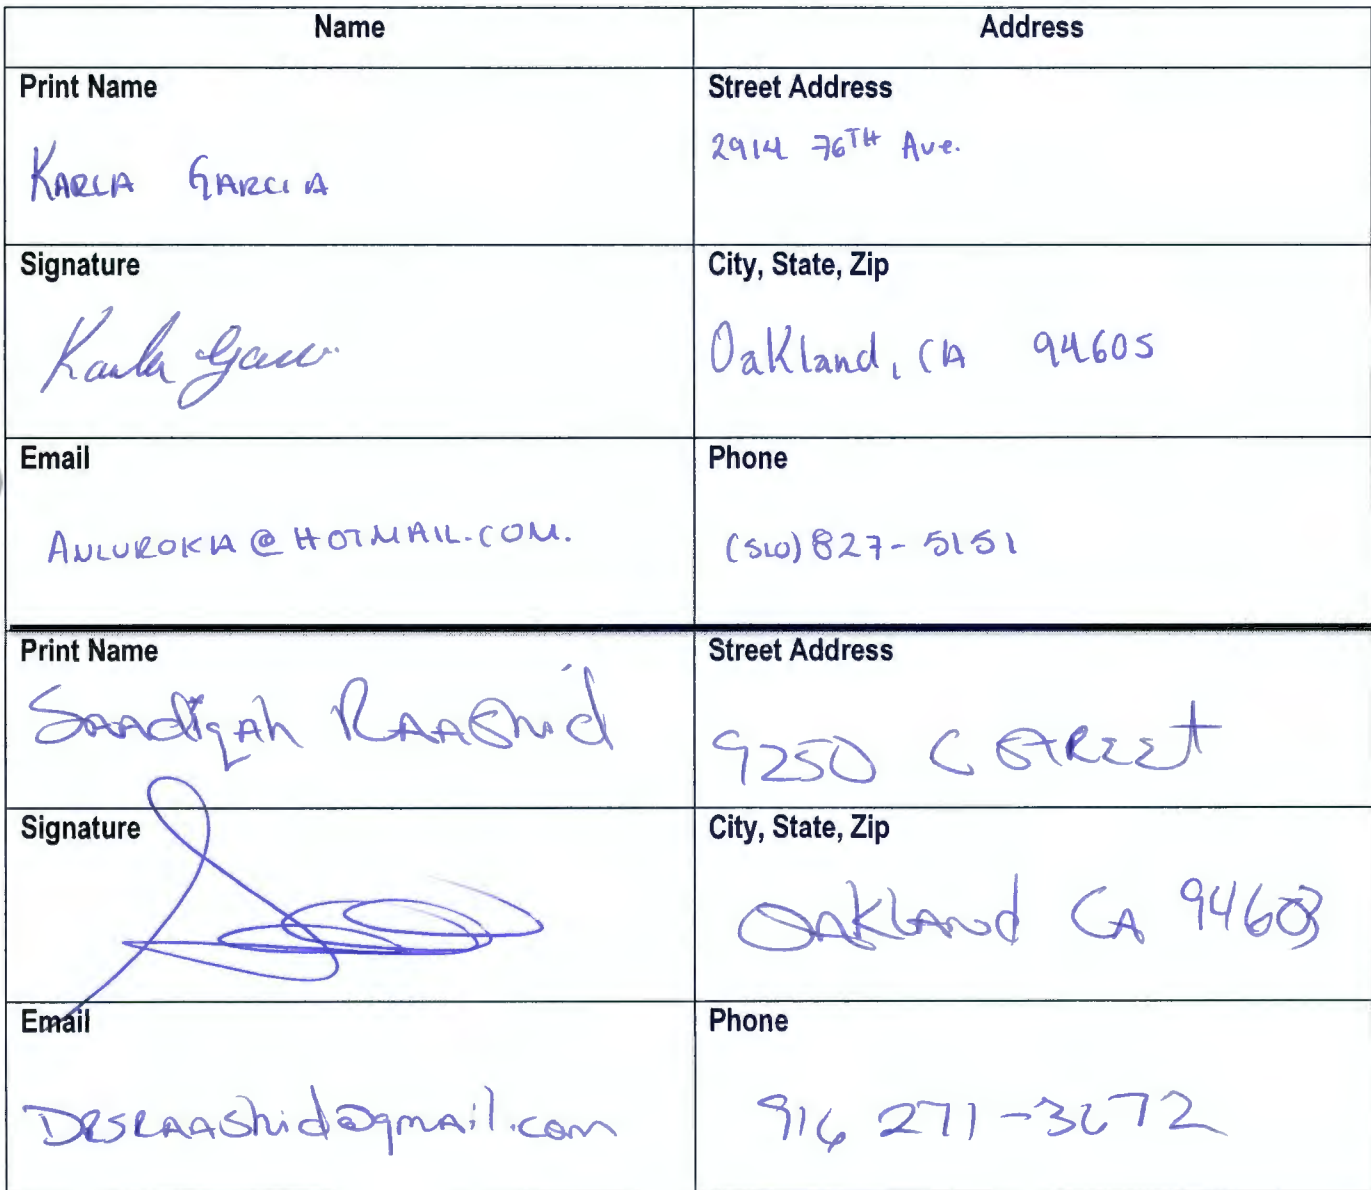 Name
Address
Print Name
KARLA GARCIA
Street Address
2914 76TH Ave.
Signature
Karla Garc
City, State, Zip
Oakland, CA 94605
Email
ANLUROKIA@HOTMAIL.COM.
Phone
(510) 827-5151
Print Name
Saadiqah RAAShid
Street Address
9250 C STREEt
Signature
City, State, Zip
OAKLANd CA 94603
Email
DRSRAAShid@gmail.com
Phone
916 271-3672